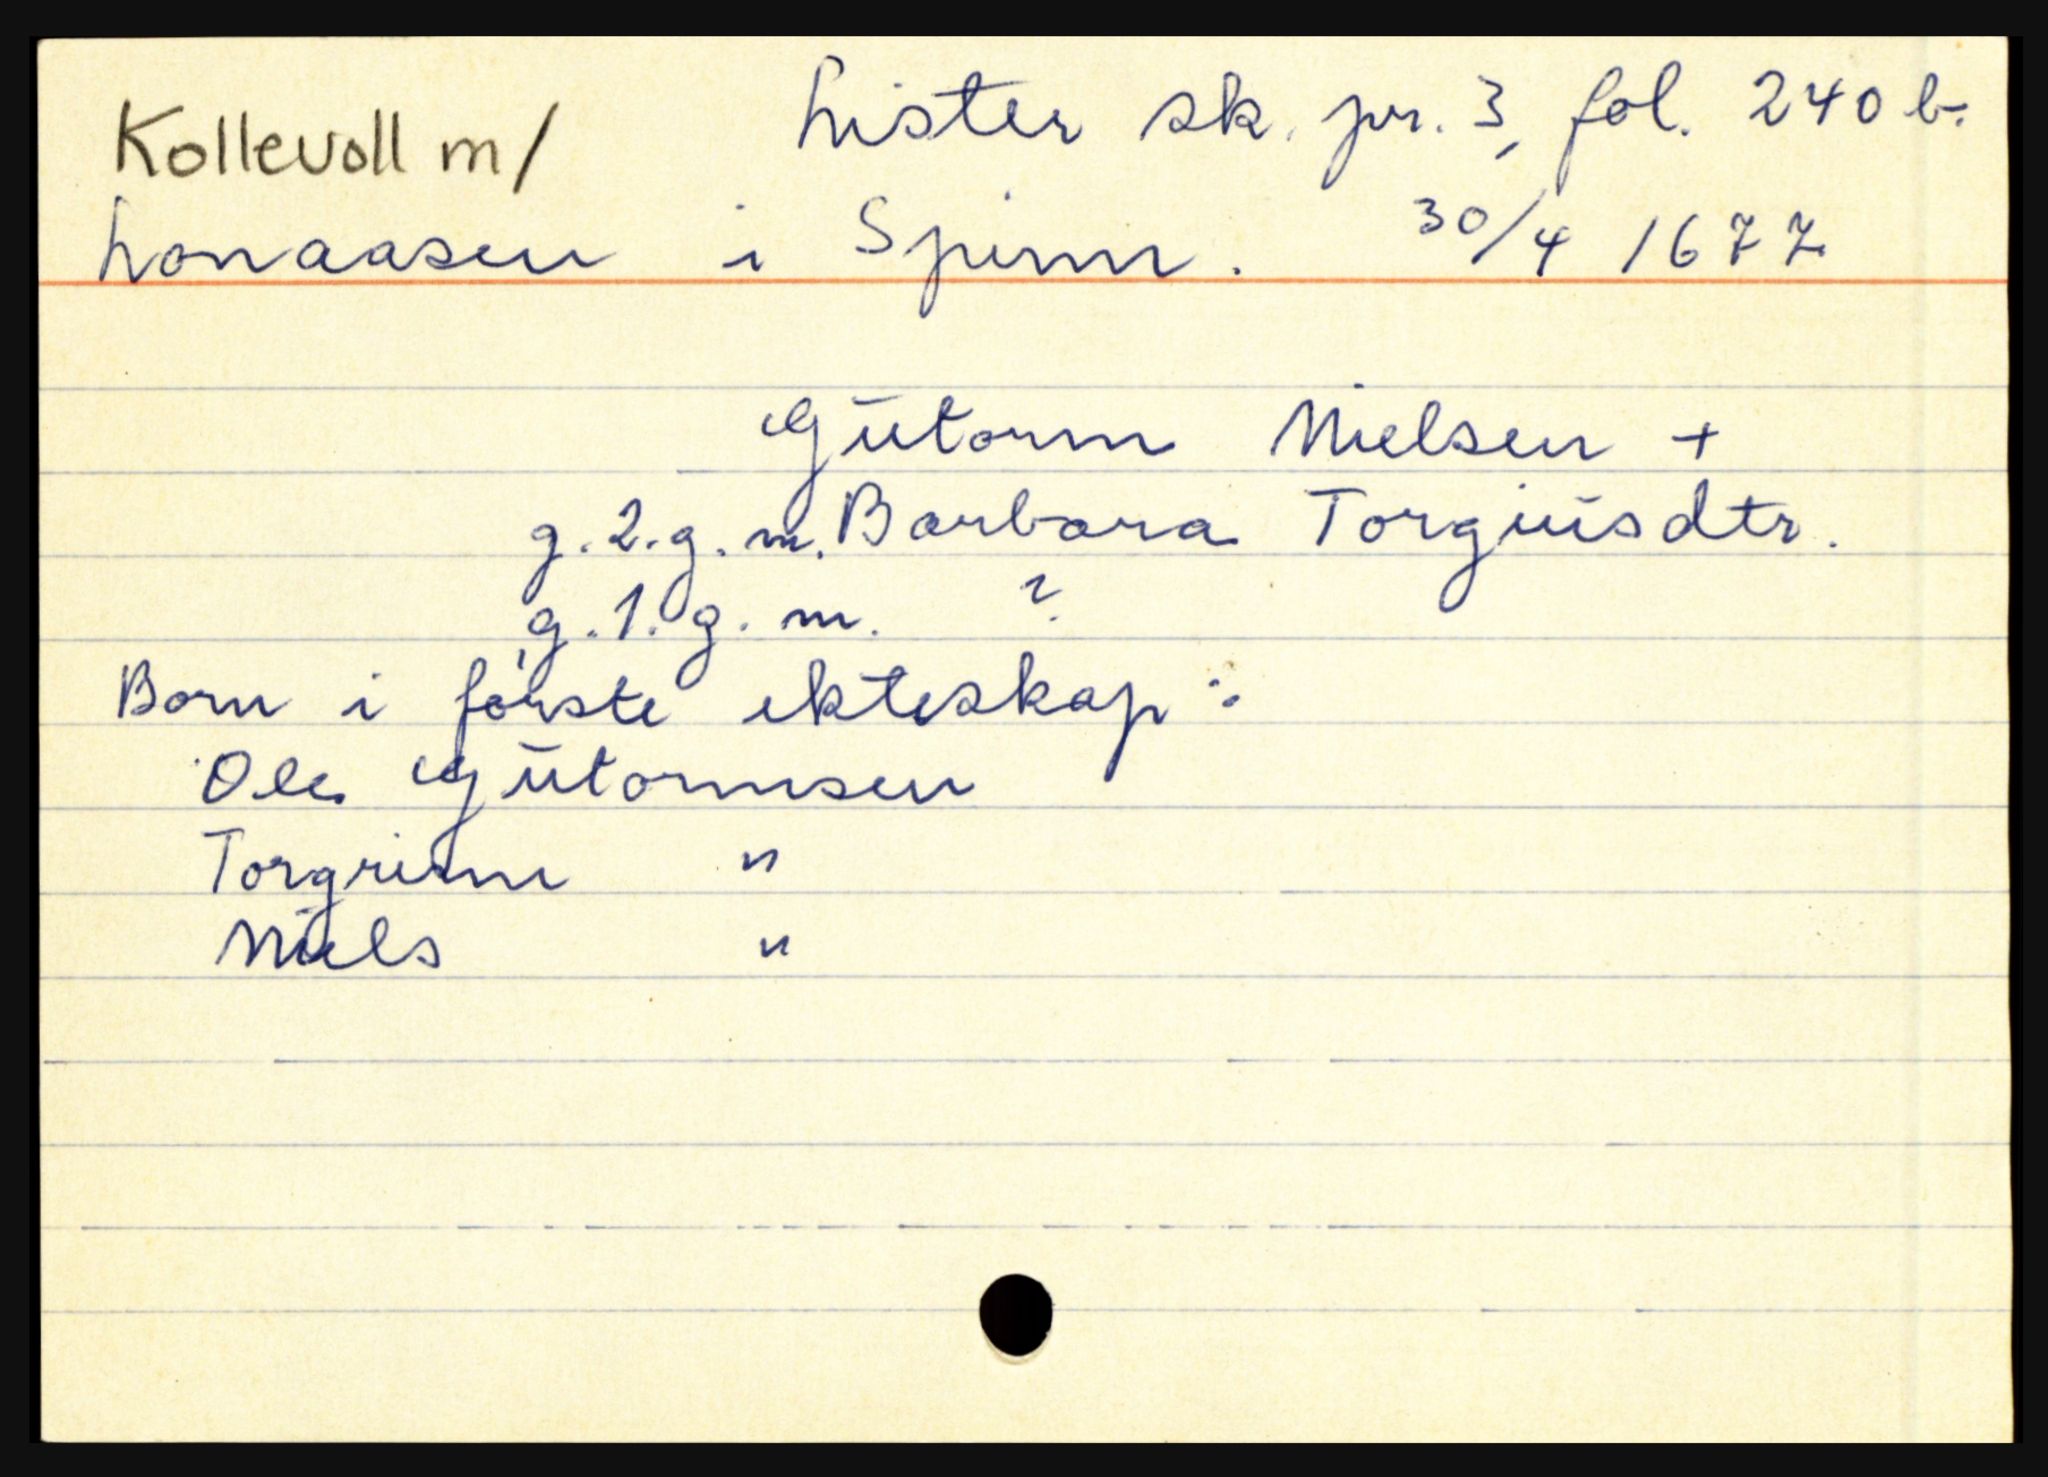 Lister sk. pr. 3, fol. 240 b.
Kollevoll m/
Lonaasen i Spinn. 30/4 1677
Gutorm Nielsen +
g. 2. g. m. Barbara Torgiusdtr.
g. 1. g. m. ?
Born i første ekteskap :
Ole Gutormsen
Torgrim "
Niels "